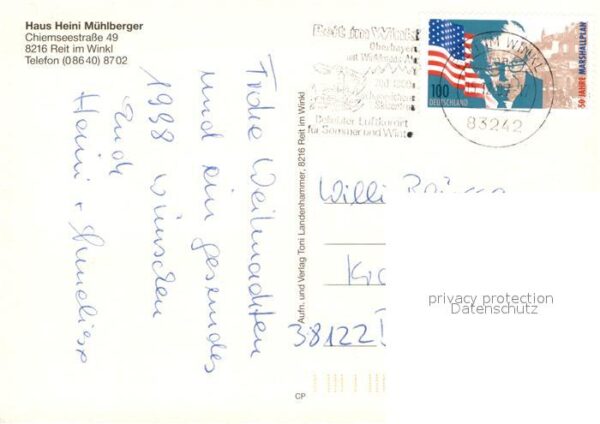 Haus Heini Mühlberger
Chiemseestraße 49
8216 Reit im Winkl
Telefon (08640) 8702
Frohe Weihnachten
und ein gesundes
1998 wünschen
Euch
Heini + Anneliese
Aufn. und Verlag Toni Landenhammer, 8216 Reit im Winkl
CP
Reit im Winkl
Oberbayern
Beliebter Luftkurort
für Sommer und Winter
IM WINKL
83242
100
DEUTSCHLAND
50 JAHRE MARSHALLPLAN
Willi
38122
privacy protection
Datenschutz